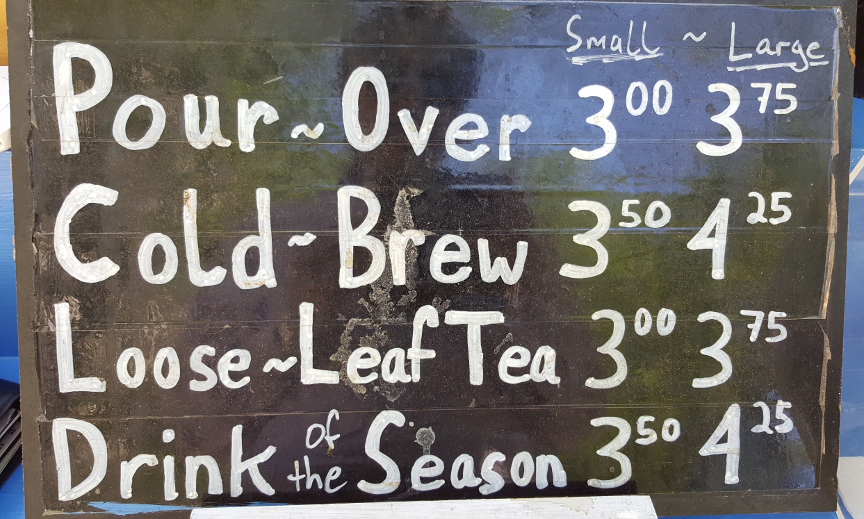 Small ~ Large
Pour~Over 3⁰⁰ 3⁷⁵
Cold~Brew 3⁵⁰ 4²⁵
Loose~Leaf Tea 3⁰⁰ 3⁷⁵
Drink of the Season 3⁵⁰ 4²⁵